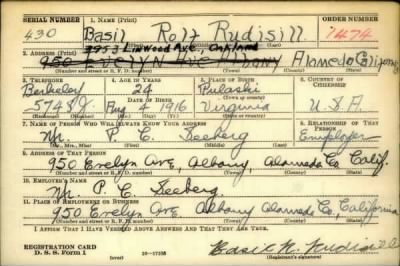 SERIAL NUMBER 1. NAME (Print) ORDER NUMBER
430 Basil Rolf Rudisill 1474
(First) (Middle) (Last)
3953 Linwood Ave., Oakland
2. ADDRESS (Print)
950 EVELYN AVE Albany Alameda California
(Number and street or R. F. D. number) (Town) (County) (State)
3. TELEPHONE 4. AGE IN YEARS 5. PLACE OF BIRTH 6. COUNTRY OF CITIZENSHIP
Berkeley 24 Pulaski
DATE OF BIRTH (Town or county)
5748J Aug 4 1916 Virginia U.S.A
(Exchange) (Number) (Mo.) (Day) (Yr.) (State or country)
7. NAME OF PERSON WHO WILL ALWAYS KNOW YOUR ADDRESS 8. RELATIONSHIP OF THAT PERSON
Mr. P. C. Seeberg Employer
(Mr., Mrs., Miss) (First) (Middle) (Last)
9. ADDRESS OF THAT PERSON
950 Evelyn Ave, Albany, Alameda Co. Calif.
(Number and street or R. F. D. number) (Town) (County) (State)
10. EMPLOYER'S NAME
Mr. P. C. Seeberg
11. PLACE OF EMPLOYMENT OR BUSINESS
950 Evelyn Ave, Albany Alameda Co, California
(Number and street or R. F. D. number) (Town) (County) (State)
I AFFIRM THAT I HAVE VERIFIED ABOVE ANSWERS AND THAT THEY ARE TRUE.
REGISTRATION CARD
D. S. S. Form 1 (over) 16—17105 Basil R. Rudisill
(Registrant's signature)